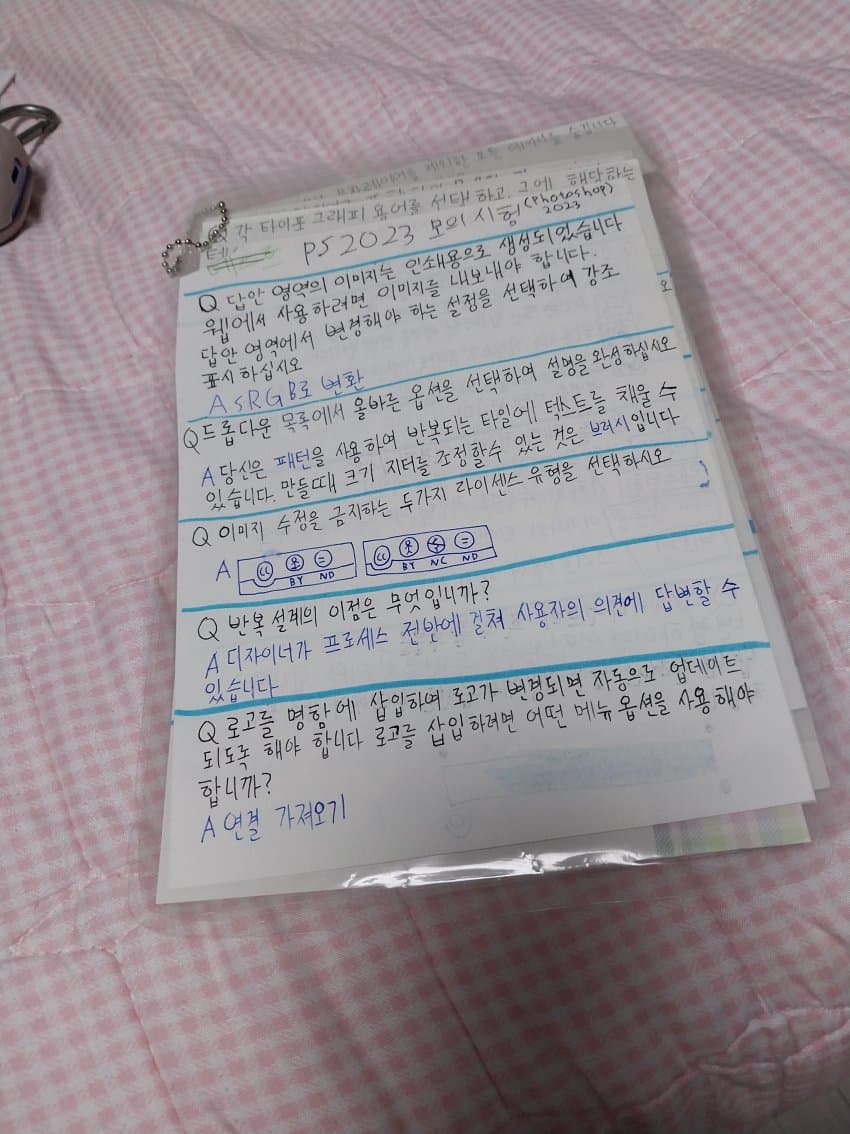 각 타이포그래피 용어를 선택하고. 그에 해당하는
테
PS2023 모의시험 (Photoshop) 2023
Q 답안 영역의 이미지는 인쇄용으로 생성되있습니다
웹에서 사용하려면 이미지를 내보내야 합니다.
답안 영역에서 변경해야 하는 설정을 선택하여 강조
표시하십시오
A sRGB로 변환
Q 드롭다운 목록에서 올바른 옵션을 선택하여 설명을 완성하십시오
A 당신은 패턴을 사용하여 반복되는 타일에 텍스트를 채울 수
있습니다. 만들때 크기 지터를 조정할수 있는 것은 브러시입니다
Q 이미지 수정을 금지하는 두가지 라이센스 유형을 선택하시오
A cc BY ND cc BY NC ND
Q 반복 설계의 이점은 무엇입니까?
A 디자이너가 프로세스 전반에 걸쳐 사용자의 의견에 답변할 수
있습니다
Q 로고를 명함에 삽입하여 로고가 변경되면 자동으로 업데이트
되도록 해야 합니다 로고를 삽입하려면 어떤 메뉴 옵션을 사용해야
합니까?
A 연결 가져오기